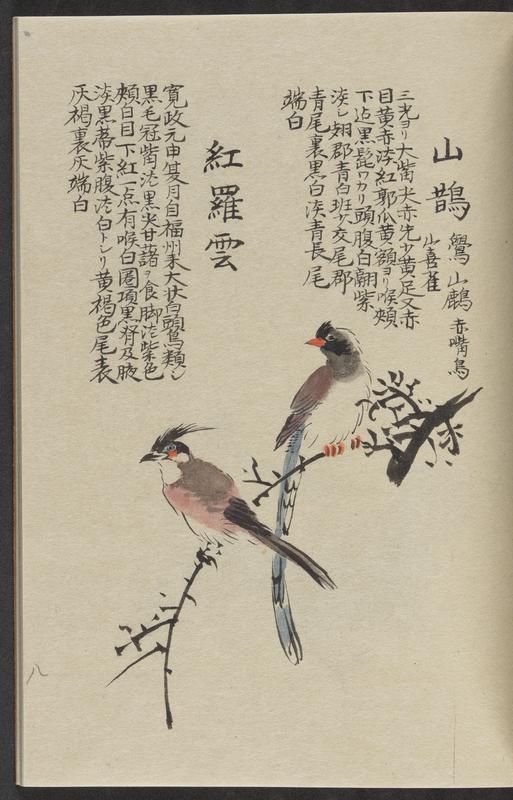 山鵲 鸒 山鷓 赤嘴鳥
山喜雀
三光ヨリ大觜尖赤先少黄足又赤
目黄赤滲紅郭瓜黄額ヨリ喉頰
下迠黒髭ワカリ頭腹白翮紫
淡シ翅郡青白班少交尾郡
青尾裏黒白淡青長尾
端白
紅羅雲
寛政元申夏月自福州来大状白頭鳥類シ
黒毛冠觜淡黒尖甘藷ヲ食脚淡紫色
頰白目下紅一点有喉白圏項黒脊及腋
淡黒蒼紫腹淡白トシリ黄褐色尾表
灰褐裏灰端白
八